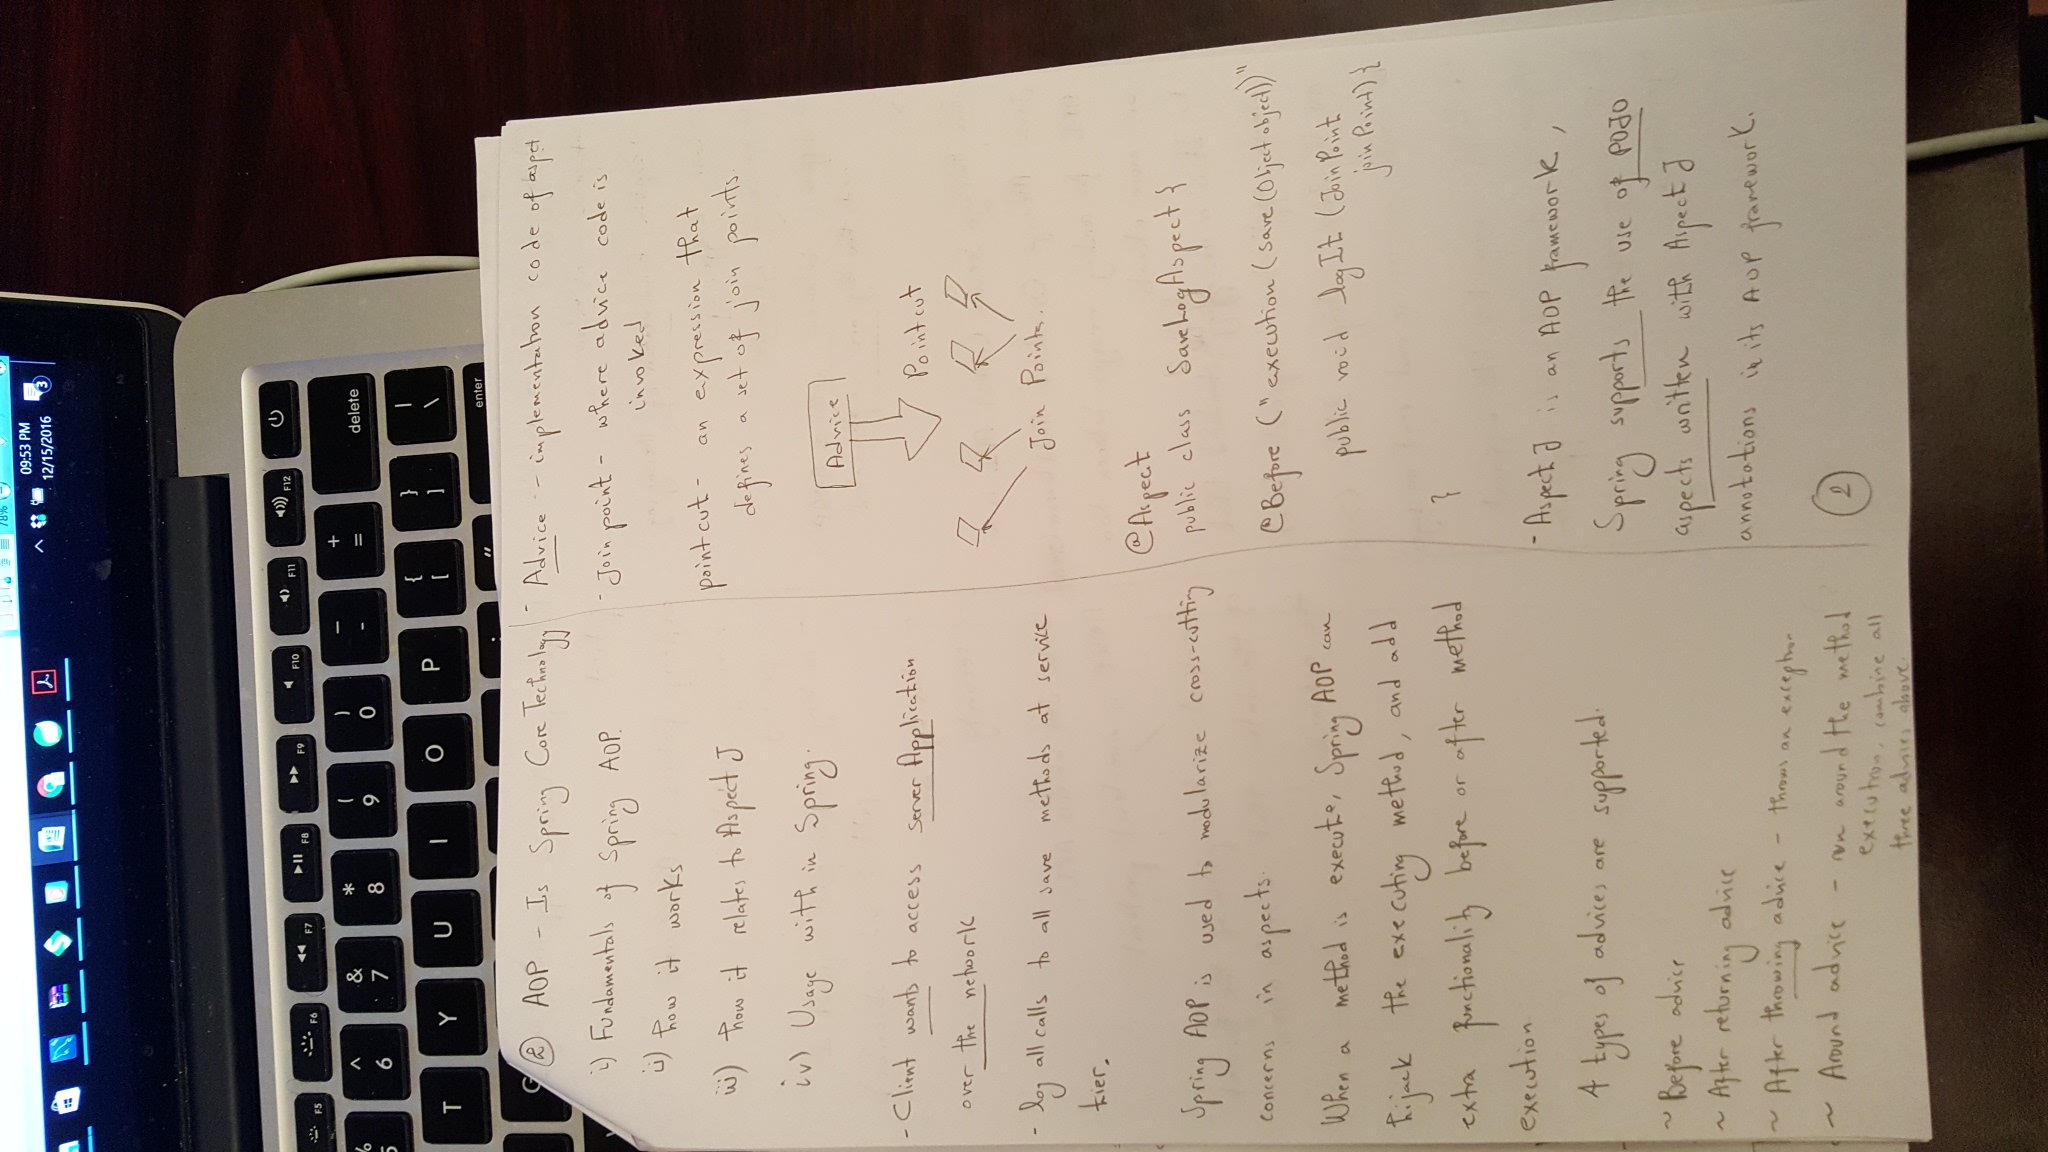 78%
09:53 PM
12/15/2016
3
F5 F6 F7 F8 F9 F10 F11 F12
% ^ & * ( ) _ + delete
5 6 7 8 9 0 - =
T Y U I O P { [ } ] | \
G " enter
② AOP - Is Spring Core Technology
i) Fundamentals of Spring AOP.
ii) how it works
iii) how it relates to Aspect J
iv) Usage with in Spring.
- Client wants to access server Application
over the network
- log all calls to all save methods at service
tier.
Spring AOP is used to modularize cross-cutting
concerns in aspects.
When a method is execute, Spring AOP can
hijack the executing method, and add
extra functionality before or after method
execution
4 types of advices are supported.
~ Before advice
~ After returning advice
~ After throwing advice - throws an exception
~ Around advice - run around the method
execution, combine all
three advices above.
- Advice - implementation code of aspet
- Join point - where advice code is
invoked
point cut - an expression that
defines a set of join points.
Advice
Point cut
Join Points.
@Aspect
public class SaveLogAspect {
@Before ("execution (save (Object object))"
public void logIt (JoinPoint
joinPoint) {
}
- Aspect J is an AOP framework,
Spring supports the use of POJO
aspects written with Aspect J
annotations in its AOP framework.
2